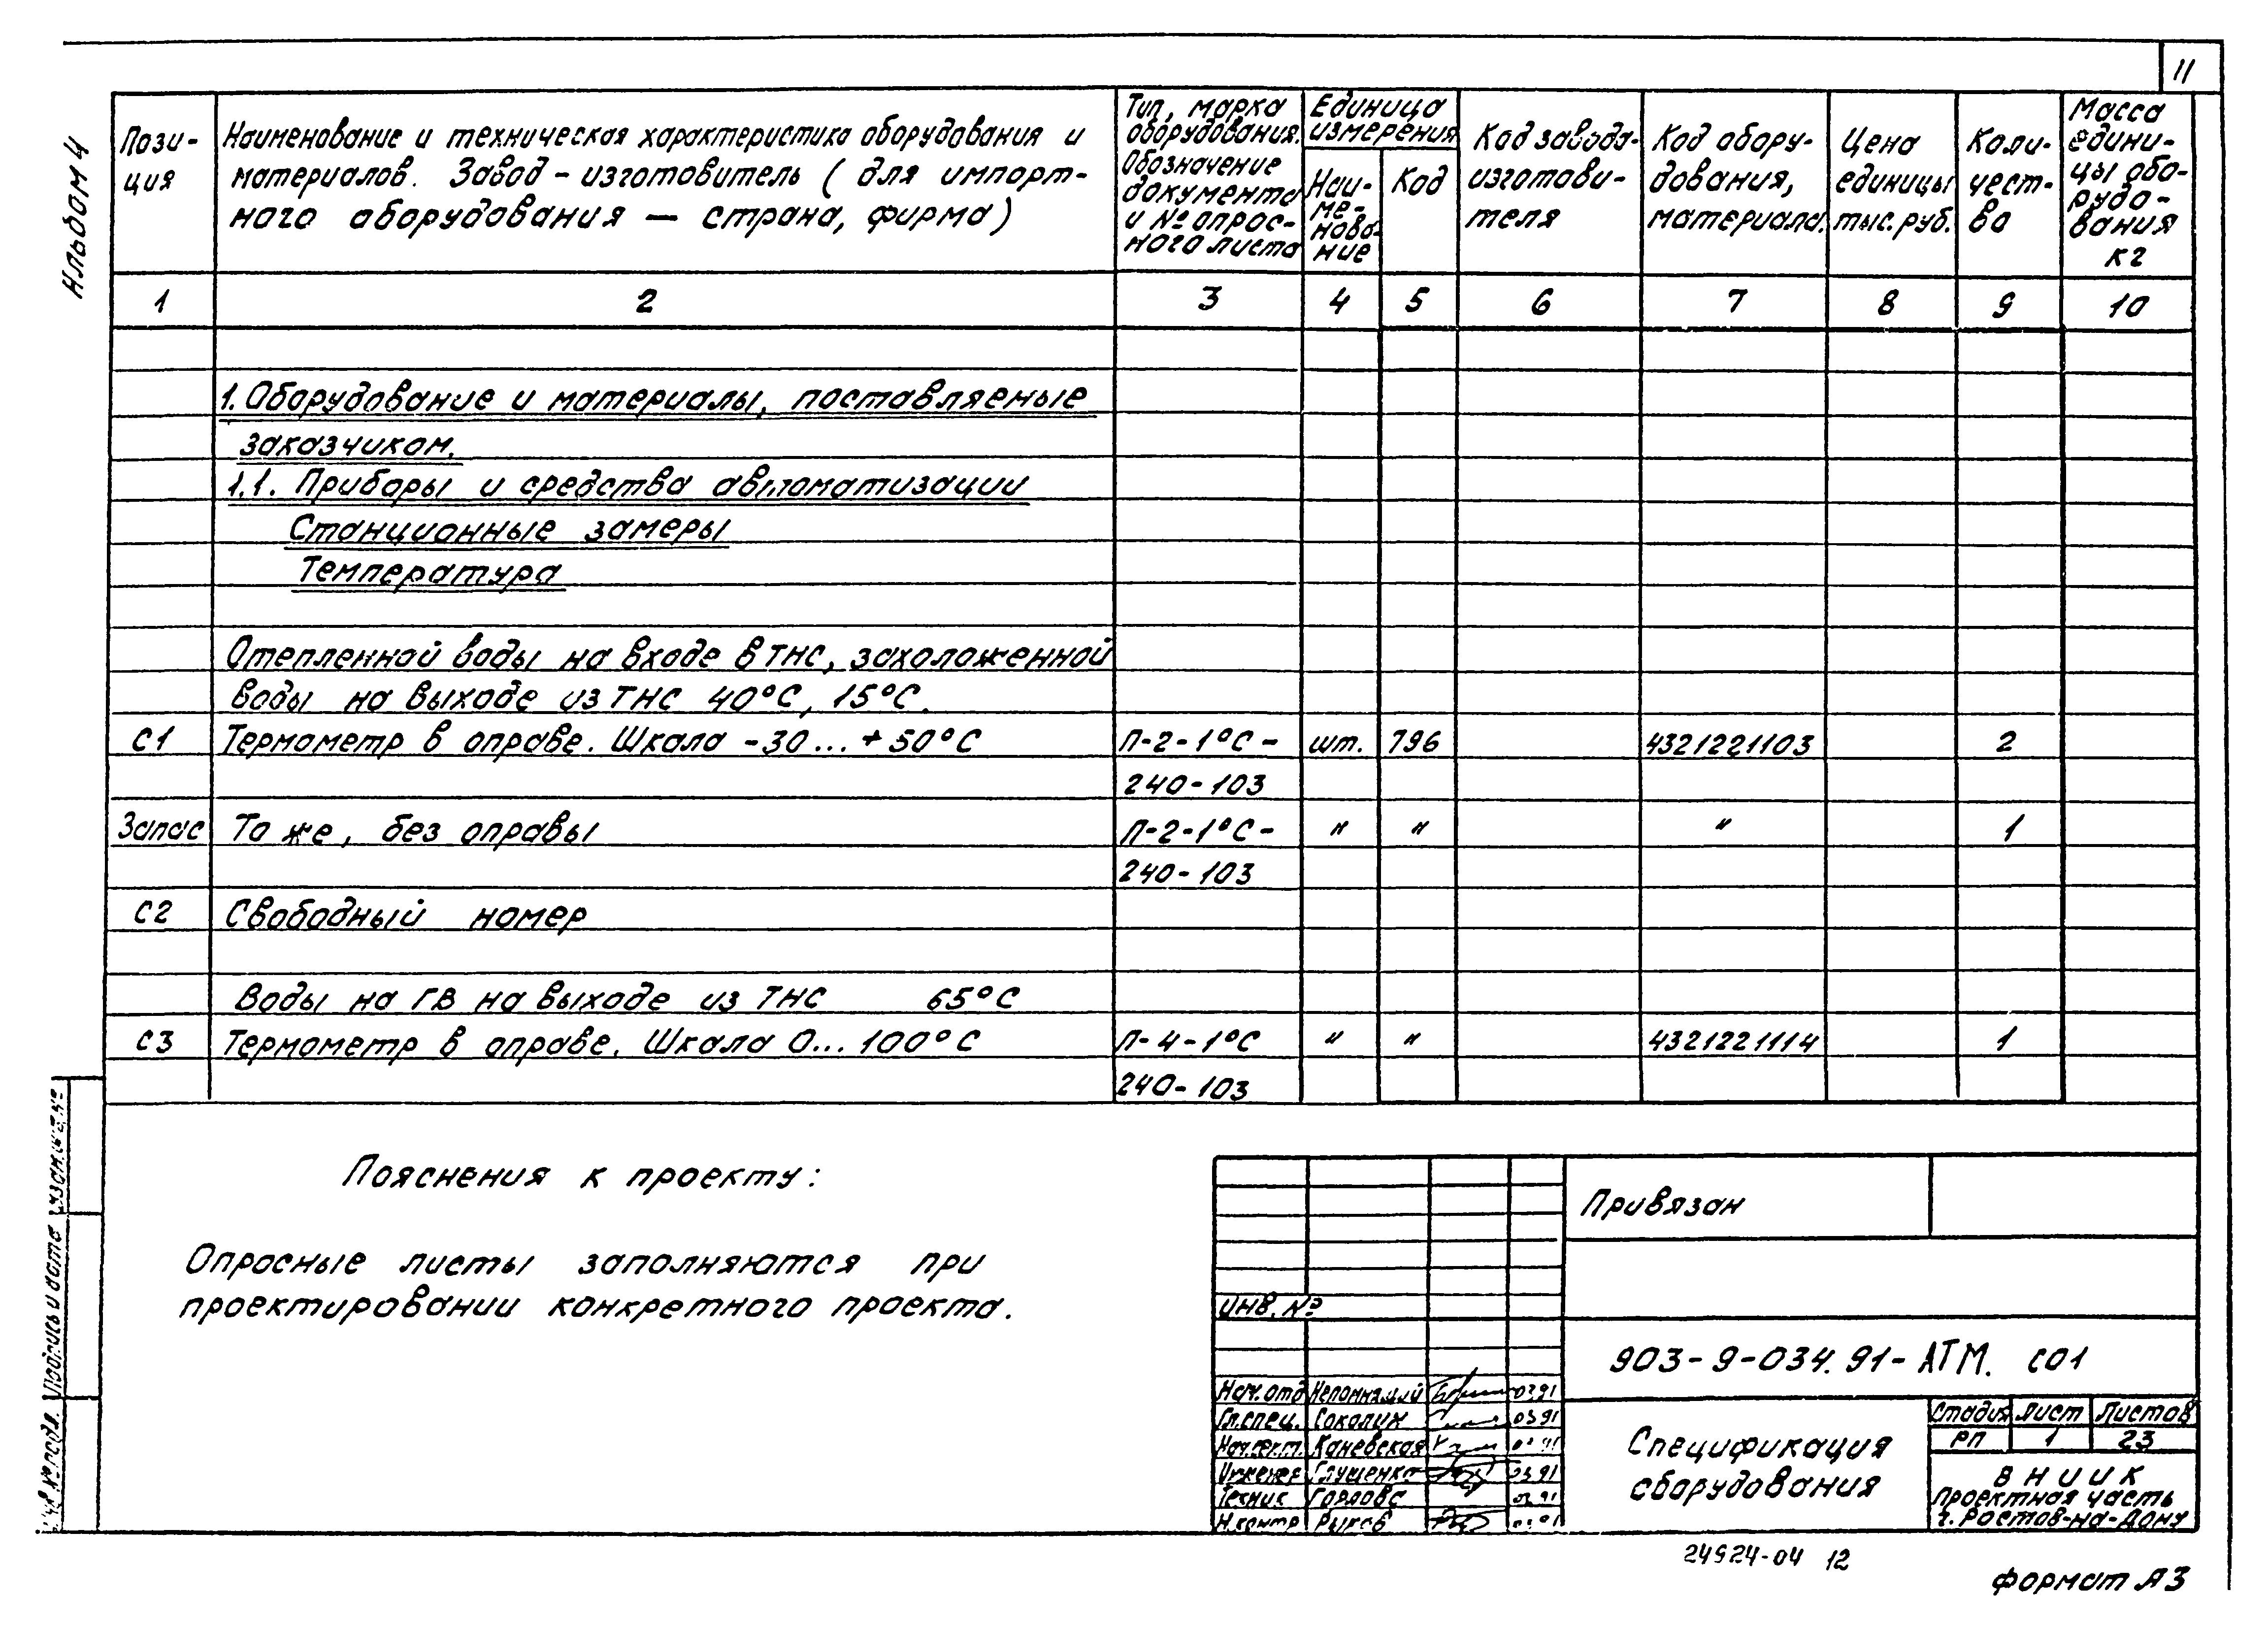 11
Альбом 4
Пози-
ция
Наименование и техническая характеристика оборудования и
материалов. Завод - изготовитель ( для импорт-
ного оборудования — страна, фирма)
Тип, марка
оборудования.
Обозначение
документа
и № опрос-
ного листа
Единица
измерения
Наи-
ме-
нова-
ние
Код
Код завода-
изготови-
теля
Код обору-
дования,
материала.
Цена
единицы
тыс. руб.
Коли-
чест-
во
Масса
едини-
цы обо-
рудо-
вания
кг
1 2 3 4 5 6 7 8 9 10
1. Оборудование и материалы, поставляемые
заказчиком.
1.1. Приборы и средства автоматизации
Станционные замеры
Температура
Отепленной воды на входе в ТНС, захоложенной
воды на выходе из ТНС 40°С, 15°С.
С1 Термометр в оправе. Шкала -30... +50°С П-2-1°С- шт. 796 4321221103 2
240-103
Запас То же, без оправы П-2-1°С- " " " 1
240-103
С2 Свободный номер
Воды на ГВ на выходе из ТНС 65°С
С3 Термометр в оправе. Шкала 0... 100°С П-4-1°С " " 4321221114 1
240-103
Пояснения к проекту:
Опросные листы заполняются при
проектировании конкретного проекта.
Привязан
Инв. №
903-9-034.91-АТМ. СО1
Нач.отд Непомнящий 03.91
Гл.спец. Соколин 03.91
Каневская
Инженер Глущенко 03.91
Техник 03.91
Н.контр Рыков
Спецификация
оборудования
Стадия Лист Листов
РП 1 23
ВНИИК
Проектная часть
г. Ростов-на-Дону
Взам.инв.№
Подпись и дата
Инв.№ подл.
24924-04 12
формат А3